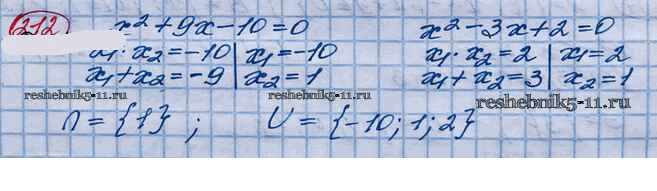 212
x²+9x-10=0
x₁·x₂=-10 | x₁=-10
x₁+x₂=-9 | x₂=1
x²-3x+2=0
x₁·x₂=2 | x₁=2
x₁+x₂=3 | x₂=1
reshebnik5-11.ru
reshebnik5-11.ru
reshebnik5-11.ru
∩={1}; U={-10;1;2}